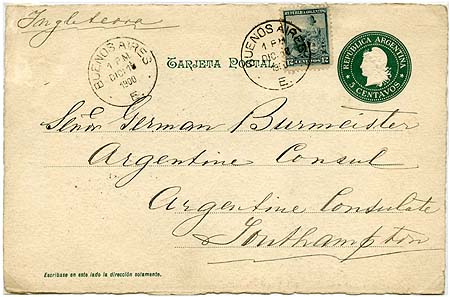 Inglaterra
BUENOS AIRES
1 P.M.
DIC
1900
E.
TARJETA POSTAL
BUENOS AIRES
1 P.M.
DIC
E.
REPUBLICA ARGENTINA
12 CENTAVOS 12
REPUBLICA ARGENTINA
5 CENTAVOS
Señr German Burmeister
Argentine Consul
Argentine Consulate
Southampton
Escríbase en este lado la dirección solamente.